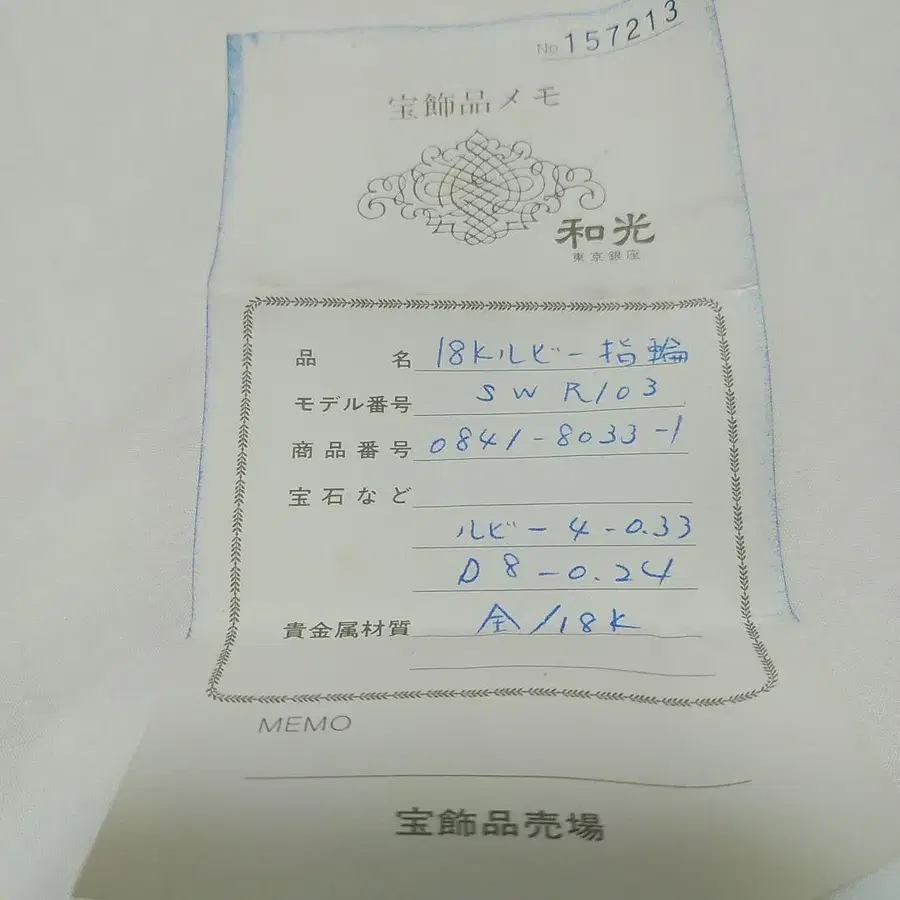 No 157213
宝飾品メモ
和光
東京銀座
品 名 18Kルビー指輪
モデル番号 SW R103
商品番号 0841-8033-1
宝石など
ルビー4-0.33
D8-0.24
貴金属材質 金/18K
MEMO
宝飾品売場